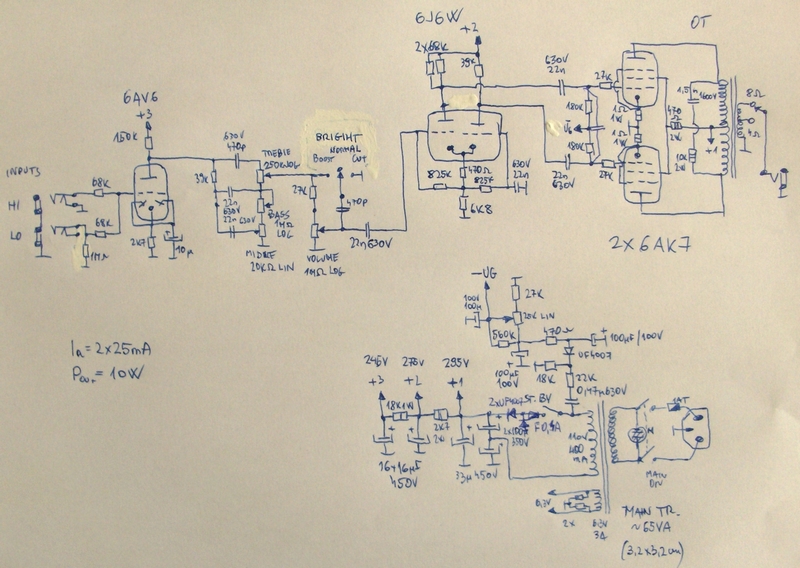 6J6W
OT
+2
2x68K
39K
630V
22n
27K
1,5n
1600V
8Ω
4Ω
180K
180K
1Ω
1W
1Ω
1W
470
2W
10K
2W
+1
22n
630V
27K
2X6AK7
6AV6
+3
150K
INPUTS
HI
LO
68K
68K
1MΩ
2K7
10µ
39K
630V
470p
TREBLE
22n
630V
22n 630V
BASS
1MΩ
LOG
MIDDLE
20KΩ LIN
BRIGHT
NORMAL
BOOST
CUT
27K
470p
VOLUME
1MΩ LOG
22n630V
825K
470Ω
825K
630V
22n
6K8
Ia = 2x25mA
Pout = 10W
-UG
27K
100V
100µ
20K LIN
560K
470Ω
100µF/100V
100µF
100V
UF4007
18K
22K
0,47µ630V
245V
+3
275V
+2
295V
+1
18K1W
2K7
2W
2xUF4007
ST. BY
F0,5A
350V
16+16µF
450V
33µ450V
110V
400
mA
N
1AT
MAIN
ON
6,3V
2x
6,3V
3A
MAIN TR.
~65VA
(3,2x3,2cm)